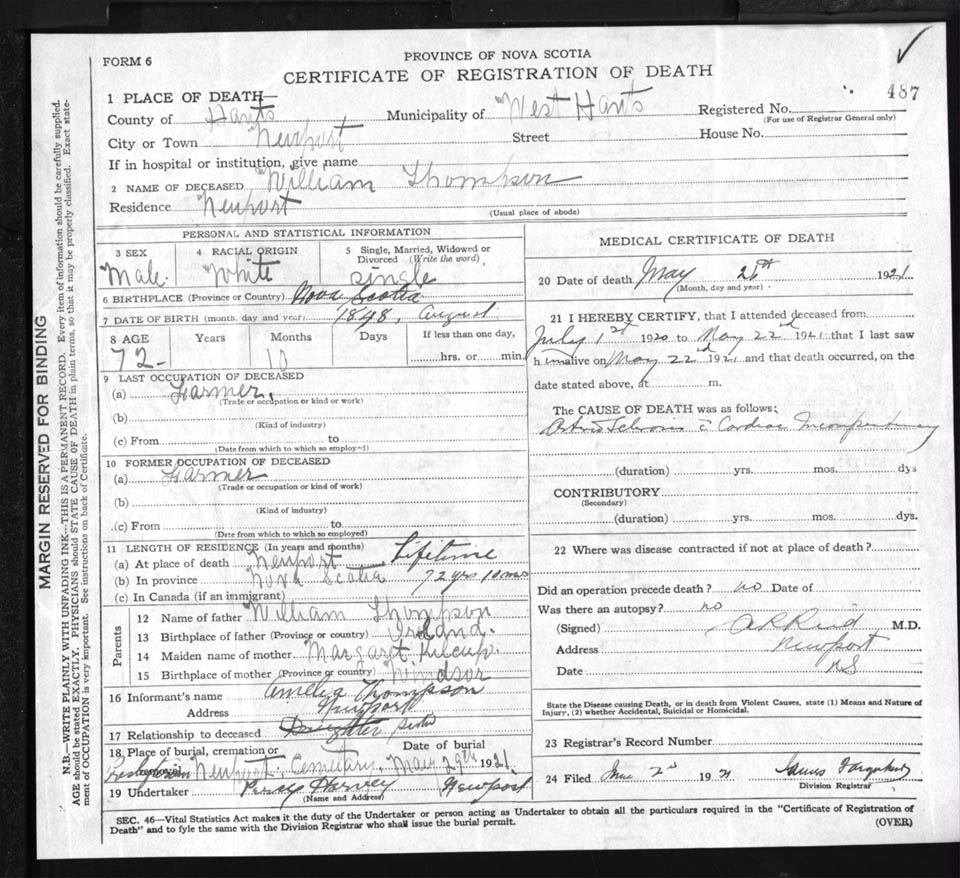 FORM 6
PROVINCE OF NOVA SCOTIA
CERTIFICATE OF REGISTRATION OF DEATH
487
1 PLACE OF DEATH—
County of Hants Municipality of West Hants Registered No.
(For use of Registrar General only)
City or Town Newport Street House No.
If in hospital or institution, give name
2 NAME OF DECEASED William Thompson
Residence Newport
(Usual place of abode)
PERSONAL AND STATISTICAL INFORMATION
3 SEX 4 RACIAL ORIGIN 5 Single, Married, Widowed or Divorced (Write the word)
Male. White single
6 BIRTHPLACE (Province or Country) Nova Scotia
7 DATE OF BIRTH (month, day and year) 1848, August
8 AGE Years Months Days If less than one day,
72 10 hrs. or min.
9 LAST OCCUPATION OF DECEASED
(a) Farmer.
(Trade or occupation or kind of work)
(b)
(Kind of industry)
(c) From to
(Date from which to which so employed)
10 FORMER OCCUPATION OF DECEASED
(a) Farmer
(Trade or occupation or kind of work)
(b)
(Kind of industry)
(c) From to
(Date from which to which so employed)
11 LENGTH OF RESIDENCE (In years and months)
(a) At place of death Newport Lifetime
(b) In province Nova Scotia 72 yrs 10 mo
(c) In Canada (if an immigrant)
Parents
12 Name of father William Thompson
13 Birthplace of father (Province or country) Ireland.
14 Maiden name of mother Margaret Kilcup.
15 Birthplace of mother (Province or country) Windsor
16 Informant's name Amelia Thompson
Address Newport
17 Relationship to deceased Daughter Sister
18 Place of burial, cremation or Date of burial
Presbyterian Newport Cemetary. May 29th 1921.
19 Undertaker Percy Harvey Newport
(Name and Address)
MEDICAL CERTIFICATE OF DEATH
20 Date of death May 26th 1921
(Month, day and year)
21 I HEREBY CERTIFY, that I attended deceased from
July 1st 1920 to May 22nd 1921 that I last saw
him alive on May 22nd 1921 and that death occurred, on the
date stated above, at m.
The CAUSE OF DEATH was as follows:
Cardiac Incompetency
(duration) yrs. mos. dys
CONTRIBUTORY
(Secondary)
(duration) yrs. mos. dys.
22 Where was disease contracted if not at place of death?
Did an operation precede death? no Date of
Was there an autopsy? no
(Signed) A R Reid M.D.
Address Newport
Date NS
State the Disease causing Death, or in death from Violent Causes, state (1) Means and Nature of Injury, (2) whether Accidental, Suicidal or Homicidal.
23 Registrar's Record Number
24 Filed June 2nd 1921 James Farquhar
Division Registrar
SEC. 46—Vital Statistics Act makes it the duty of the Undertaker or person acting as Undertaker to obtain all the particulars required in the "Certificate of Registration of
Death" and to fyle the same with the Division Registrar who shall issue the burial permit.
(OVER)
MARGIN RESERVED FOR BINDING
N.B.—WRITE PLAINLY WITH UNFADING INK—THIS IS A PERMANENT RECORD. Every item of information should be carefully supplied.
AGE should be stated EXACTLY. PHYSICIANS should STATE CAUSE OF DEATH in plain terms, so that it may be properly classified. Exact state-
ment of OCCUPATION is very important. See instructions on back of Certificate.